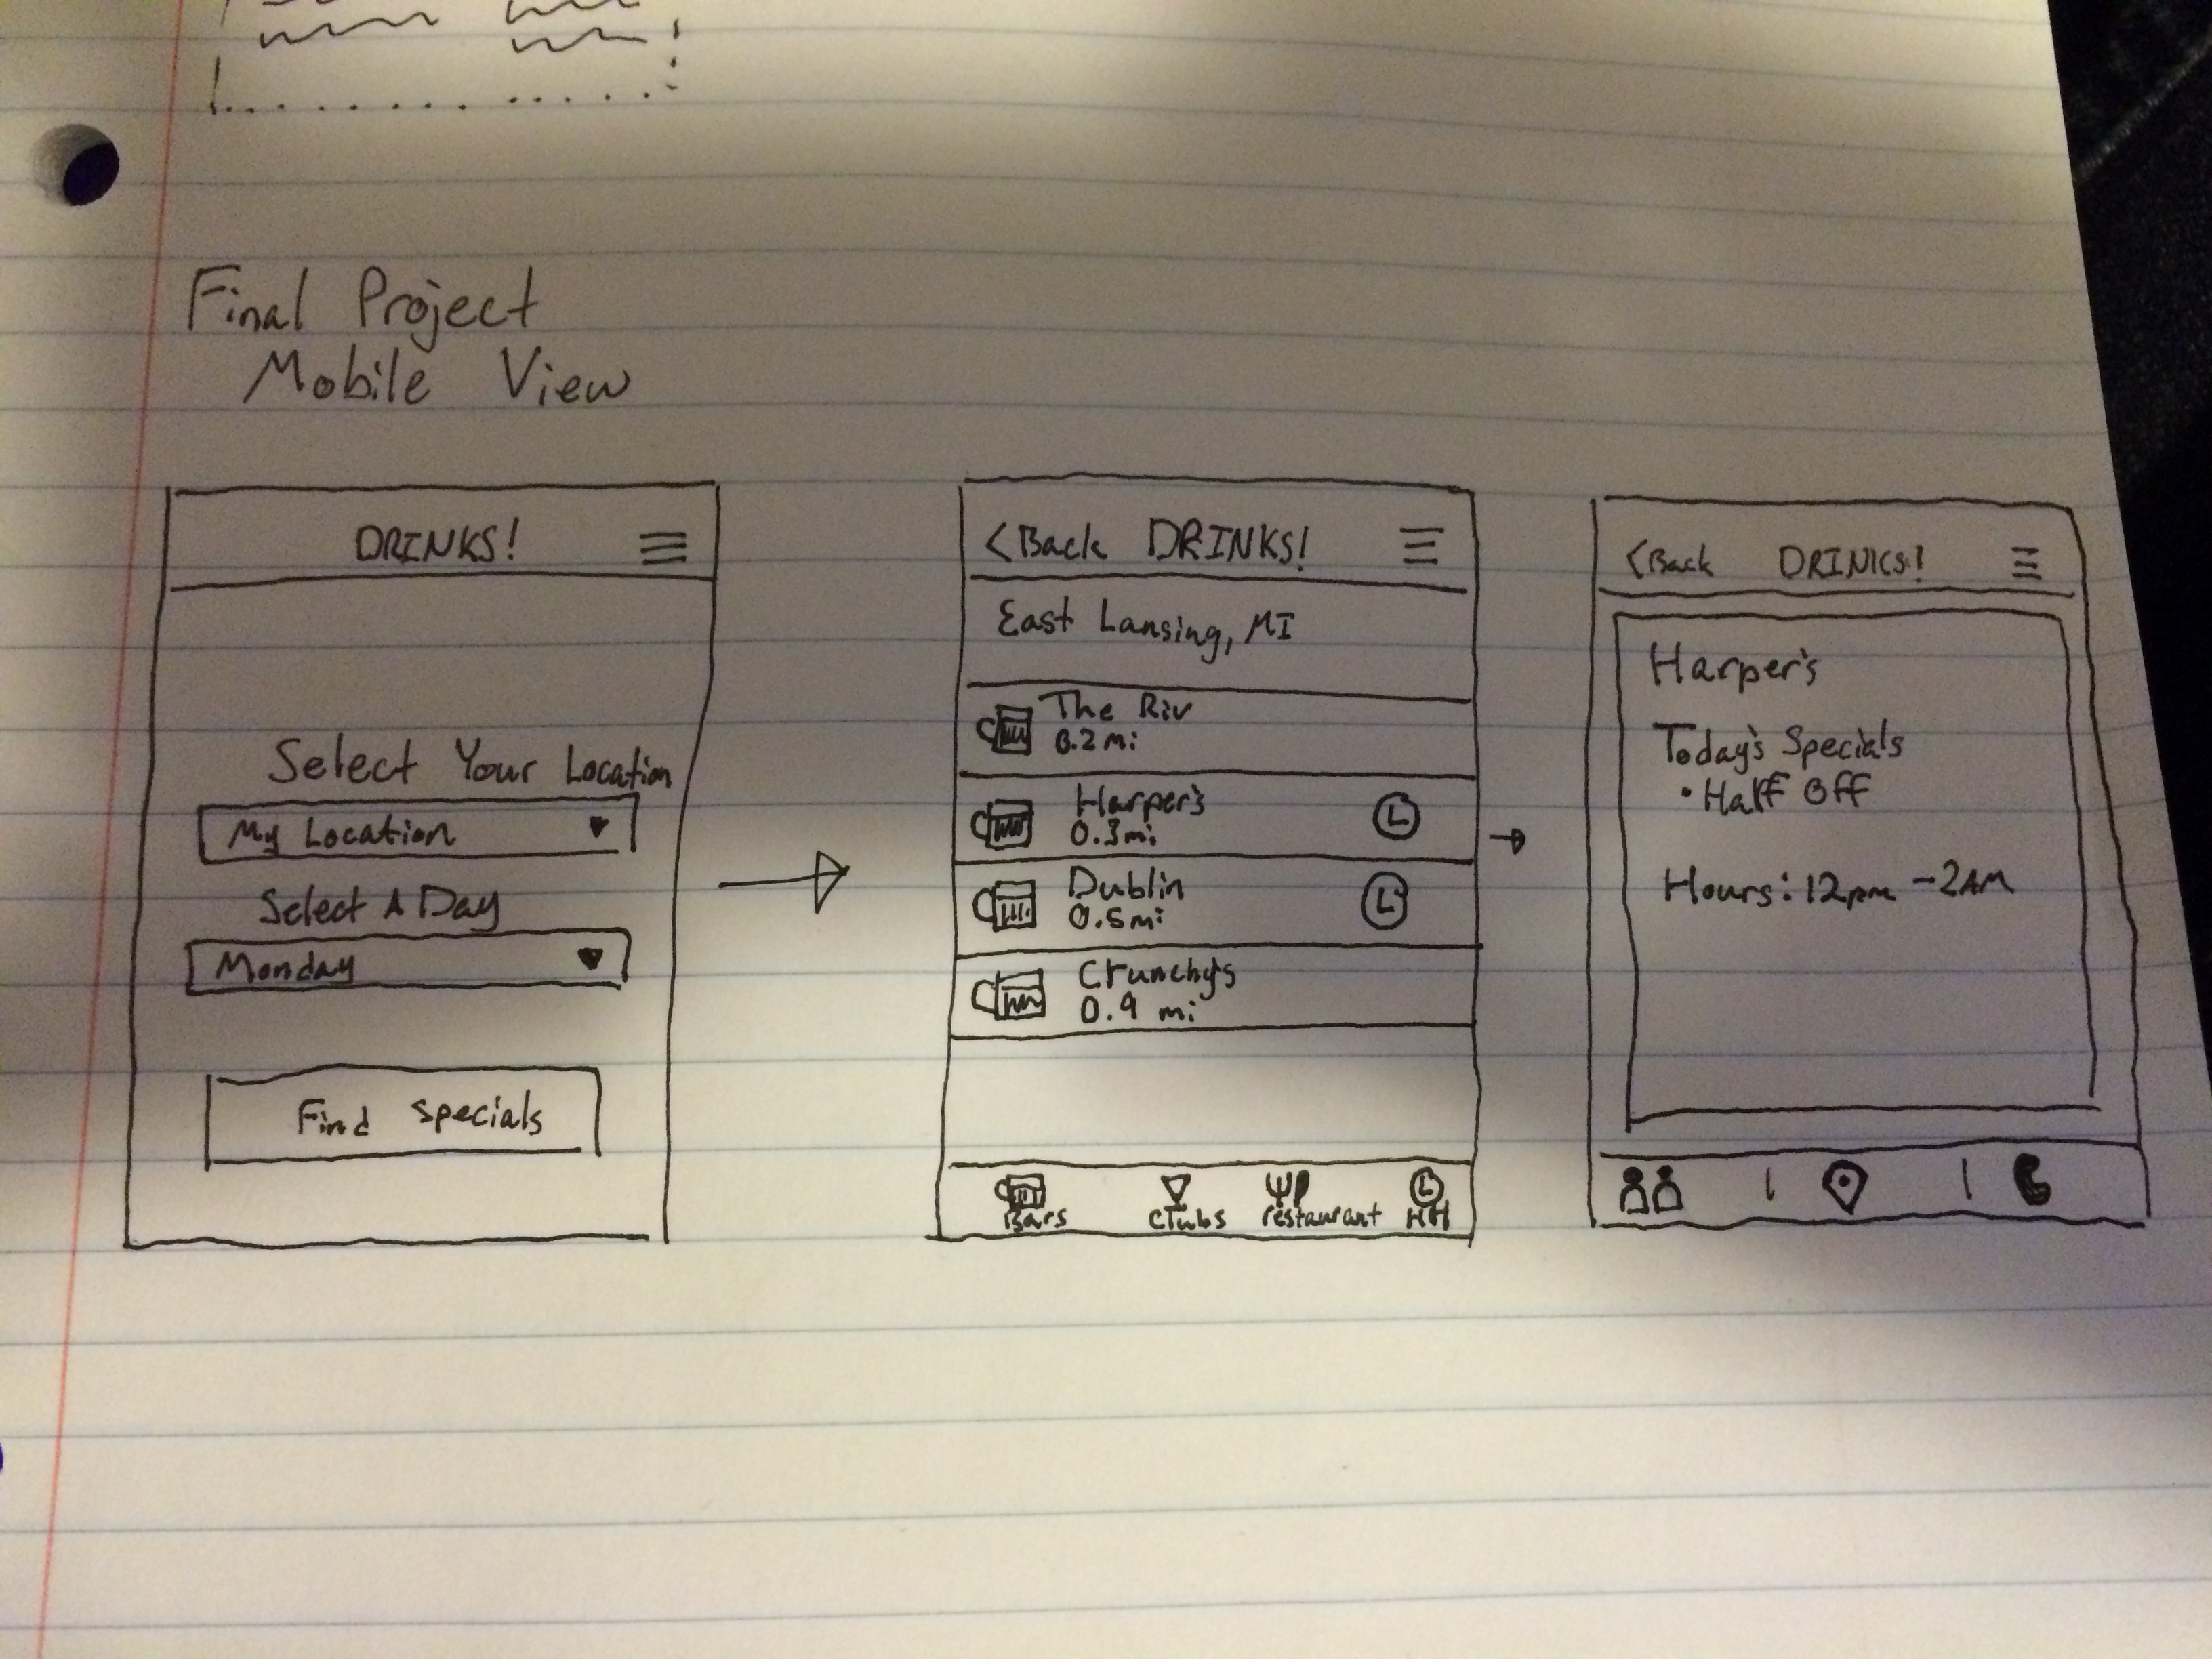 Final Project
Mobile View
DRINKS!
Select Your Location
My Location
Select A Day
Monday
Find Specials
<Back DRINKS!
East Lansing, MI
The Riv
0.2mi
Harper's
0.3mi
Dublin
0.5mi
Crunchy's
0.9 mi
Bars Clubs restaurant HH
<Back DRINKS!
Harper's
Today's Specials
• Half Off
Hours: 12pm - 2AM